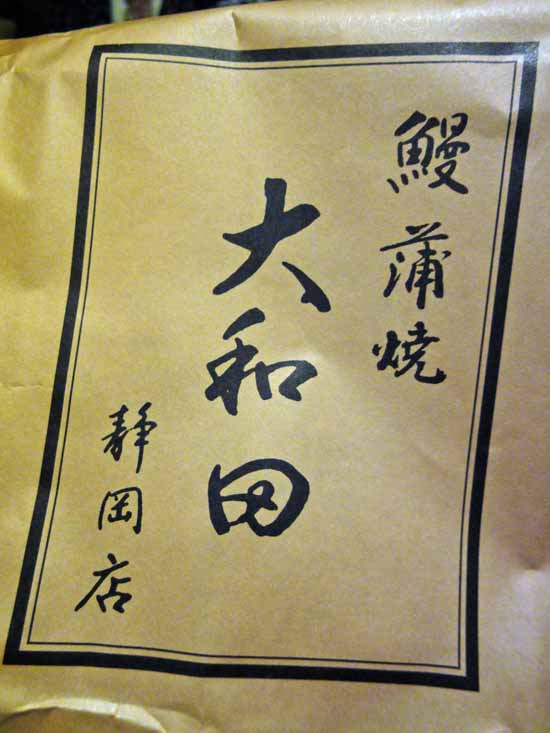 鰻蒲焼
大和田
静岡店